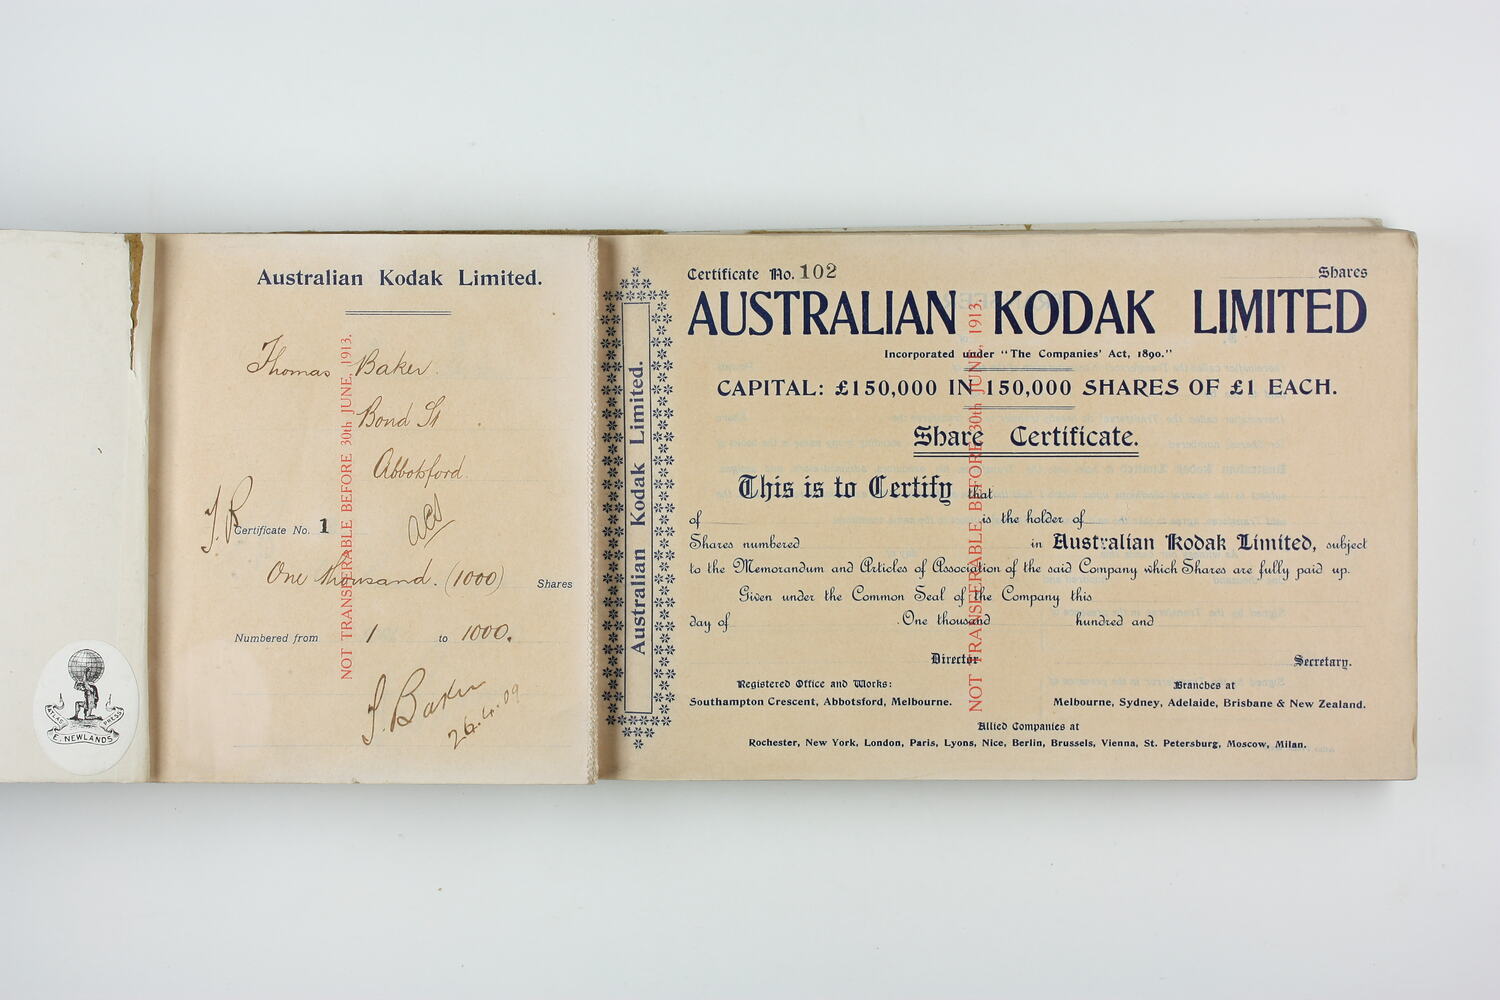 Australian Kodak Limited.
Thomas Baker.
Bond St
Abbotsford.
T.B
Certificate No. 1
One thousand. (1000) Shares
Numbered from 1 to 1000.
T. Baker
26.4.09
NOT TRANSFERABLE BEFORE 30th JUNE, 1913.
ATLAS PRESS
E. NEWLANDS
Australian Kodak Limited.
Certificate No. 102 Shares
AUSTRALIAN KODAK LIMITED
Incorporated under "The Companies' Act, 1890."
CAPITAL: £150,000 IN 150,000 SHARES OF £1 EACH.
Share Certificate.
This is to Certify that
of is the holder of
Shares numbered in Australian Kodak Limited, subject
to the Memorandum and Articles of Association of the said Company which Shares are fully paid up.
Given under the Common Seal of the Company this
day of One thousand hundred and
Director Secretary.
Registered Office and Works:
Southampton Crescent, Abbotsford, Melbourne.
Branches at
Melbourne, Sydney, Adelaide, Brisbane & New Zealand.
Allied Companies at
Rochester, New York, London, Paris, Lyons, Nice, Berlin, Brussels, Vienna, St. Petersburg, Moscow, Milan.
NOT TRANSFERABLE BEFORE 30th JUNE, 1913.